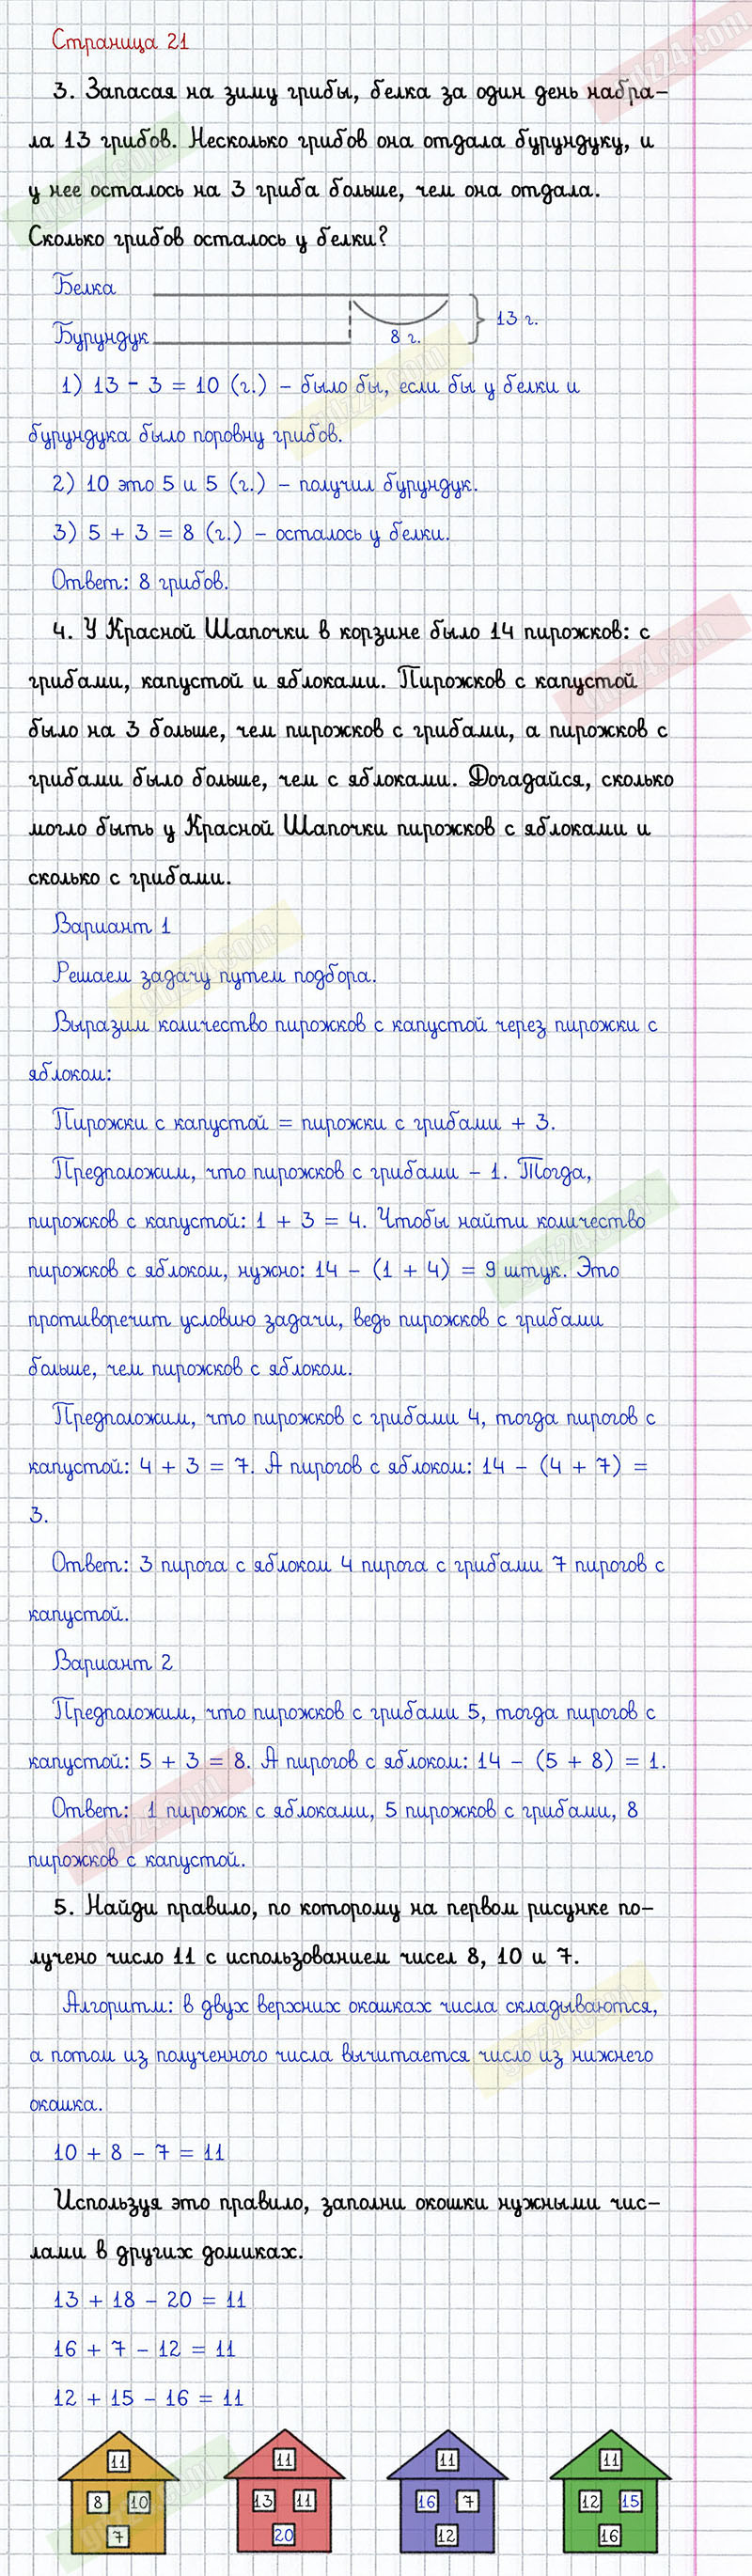 Страница 21
3. Запасая на зиму грибы, белка за один день набра-
ла 13 грибов. Несколько грибов она отдала бурундуку, и
у нее осталось на 3 гриба больше, чем она отдала.
Сколько грибов осталось у белки?
Белка
13 г.
Бурундук
8 г.
1) 13 - 3 = 10 (г.) – было бы, если бы у белки и
бурундука было поровну грибов.
2) 10 это 5 и 5 (г.) – получил бурундук.
3) 5 + 3 = 8 (г.) – осталось у белки.
Ответ: 8 грибов.
4. У Красной Шапочки в корзине было 14 пирожков: с
грибами, капустой и яблоками. Пирожков с капустой
было на 3 больше, чем пирожков с грибами, а пирожков с
грибами было больше, чем с яблоками. Догадайся, сколько
могло быть у Красной Шапочки пирожков с яблоками и
сколько с грибами.
Вариант 1
Решаем задачу путем подбора.
Выразим количество пирожков с капустой через пирожки с
яблоком:
Пирожки с капустой = пирожки с грибами + 3.
Предположим, что пирожков с грибами – 1. Тогда,
пирожков с капустой: 1 + 3 = 4. Чтобы найти количество
пирожков с яблоком, нужно: 14 – (1 + 4) = 9 штук. Это
противоречит условию задачи, ведь пирожков с грибами
больше, чем пирожков с яблоком.
Предположим, что пирожков с грибами 4, тогда пирогов с
капустой: 4 + 3 = 7. А пирогов с яблоком: 14 – (4 + 7) =
3.
Ответ: 3 пирога с яблоком 4 пирога с грибами 7 пирогов с
капустой.
Вариант 2
Предположим, что пирожков с грибами 5, тогда пирогов с
капустой: 5 + 3 = 8. А пирогов с яблоком: 14 – (5 + 8) = 1.
Ответ: 1 пирожок с яблоками, 5 пирожков с грибами, 8
пирожков с капустой.
5. Найди правило, по которому на первом рисунке по-
лучено число 11 с использованием чисел 8, 10 и 7.
Алгоритм: в двух верхних окошках числа складываются,
а потом из полученного числа вычитается число из нижнего
окошка.
10 + 8 – 7 = 11
Используя это правило, заполни окошки нужными чис-
лами в других домиках.
13 + 18 – 20 = 11
16 + 7 – 12 = 11
12 + 15 – 16 = 11
11 11 11 11
8 10 13 11 16 7 12 15
7 20 12 16